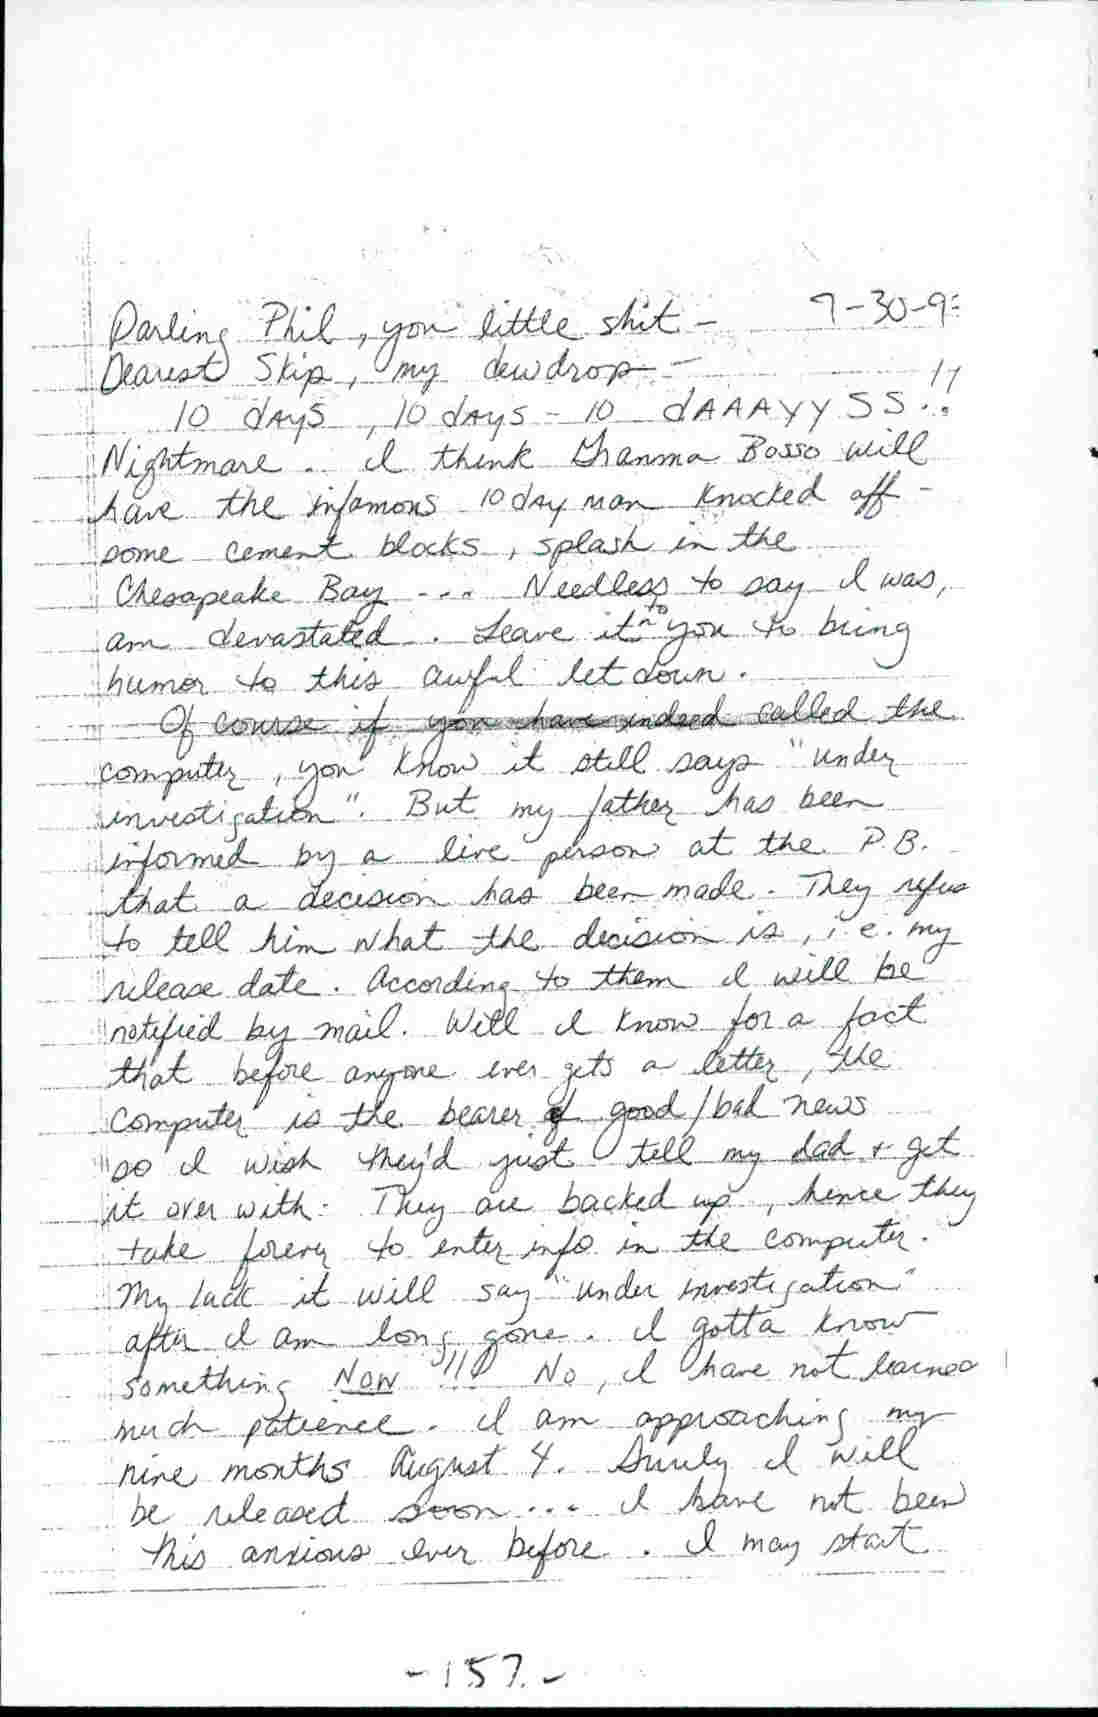 7-30-9
Darling Phil, you little shit -
Dearest Skip, my dewdrop -
10 dAyS, 10 dAyS - 10 dAAAYYSS..!!
Nightmare. I think Bosso will
have the infamous 10 day man knocked off -
some cement blocks, splash in the
Chesapeake Bay --- Needless to say I was,
am devastated. Leave it to you to bring
humor to this awful let down.
Of course if you have indeed called the
computer, you know it still says "under
investigation". But my father has been
informed by a live person at the P.B.
that a decision has been made. They refuse
to tell him what the decision is, i.e. my
release date. According to them I will be
notified by mail. Well I know for a fact
that before anyone ever gets a letter, the
computer is the bearer of good/bad news
so I wish they'd just tell my dad + get
it over with. They are backed up, hence they
take forever to enter info in the computer.
My luck it will say "under investigation"
after I am long gone. I gotta know
something NOW !!! No, I have not learned
much patience. I am approaching my
nine months August 4. Surely I will
be released soon... I have not been
this anxious ever before. I may start
-157.-